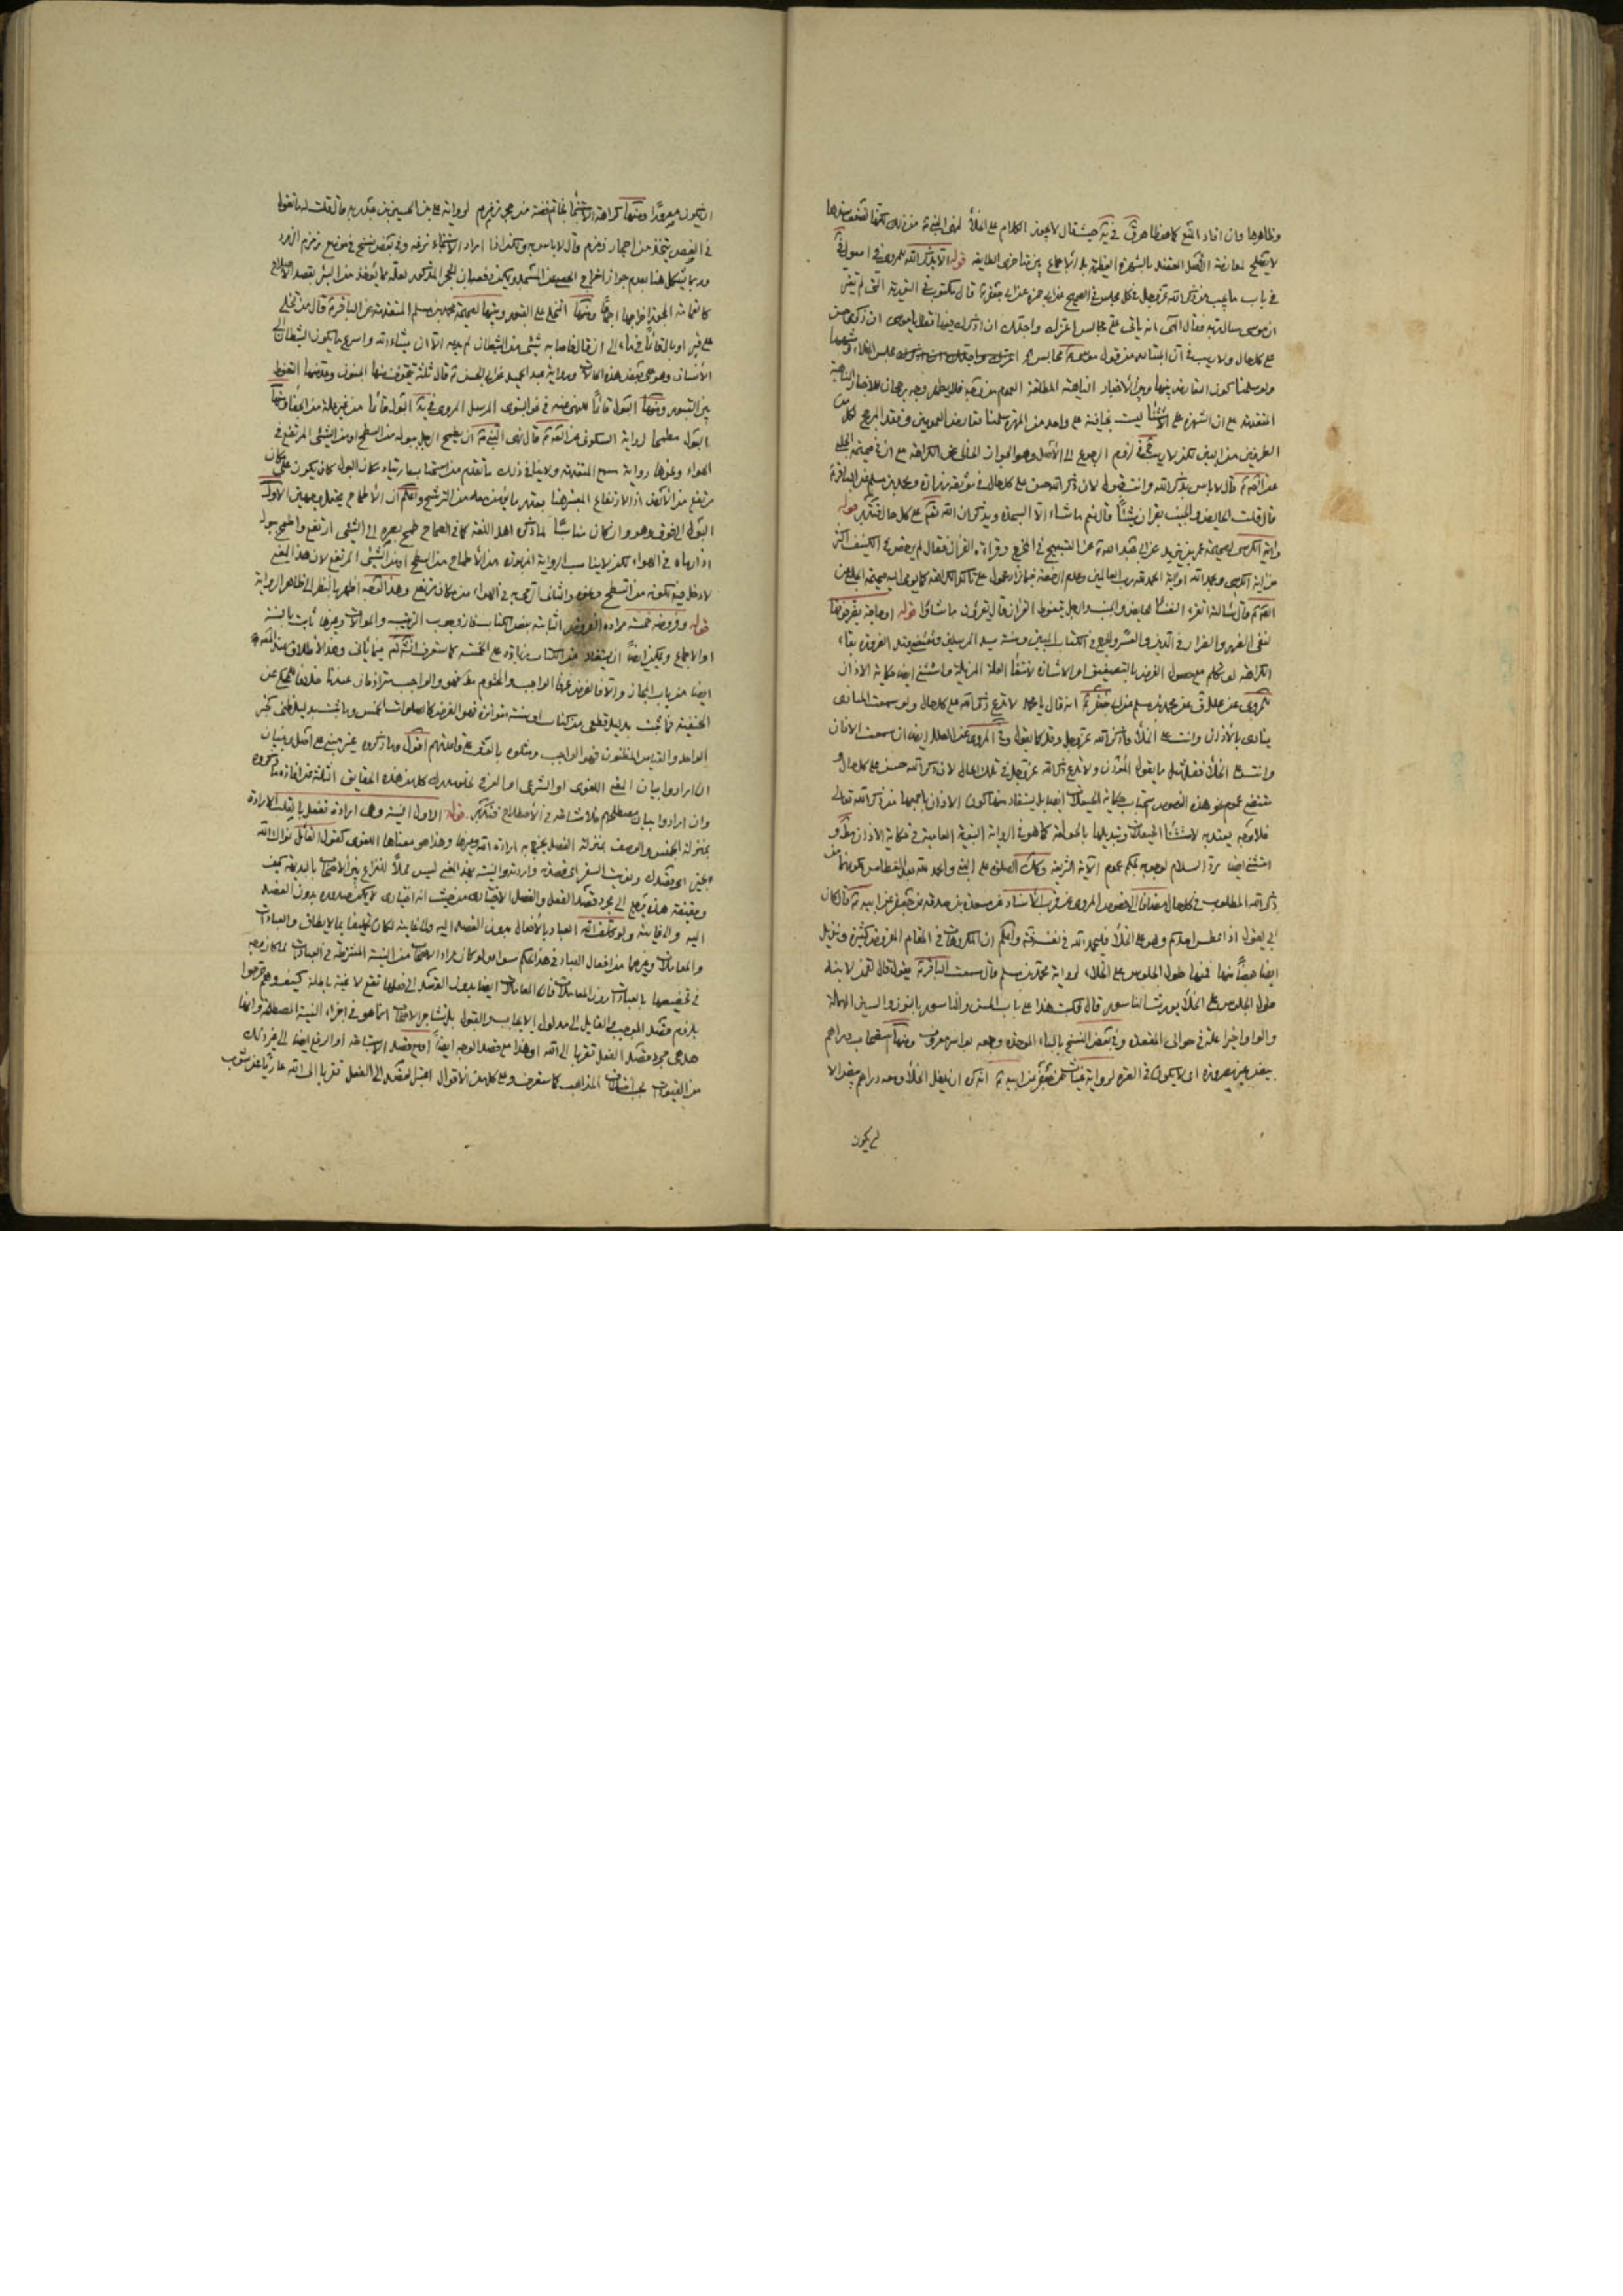 وظاهرها وان افاد المنع كما هو ظاهر في حيث قال لا يجوز الكلام على الخلاء لنهي النبي عن ذلك لكنها لضعف سندها
لا يصلح لمعارضة الاصل المعتضد بالشهرة العظيمة بل الاجماع بين متاخري الطايفة قوله الا بذكر الله للمروي في اصول
في باب ما يجب من ذكر الله عز وجل في كل مجلس في الصحيح عن ابي حمزة عن ابي جعفر قال مكتوب في التورية التي لم تغير
ان موسى سال ربه فقال الهي انه ياتي علي مجالس اعزك واجلك ان اذكرك فيها فقال يا موسى ان ذكري حسن
على كل حال ولا ريب في ان المتبادر من قول موسى مجالس
ولو سلمنا كون التعارض بينها وبين الاخبار الناهية المطلقة العموم من وجه فلا يظهر وجه رجحان للاخبار الناهية
المتقدمة مع ان الشهرة على الاستثناء ليست بخافية على واحد من المهرة سلمنا تعارض العمومين وفقد المرجح لكل من
الطرفين من البين لكن لا ريب في لزوم الرجوع الى الاصل وهو الجواز الخالي عن الكراهة مع ان في صحيحة الحلبي
قال لا باس بذكر الله وانت تبول لان ذكر الله حسن على كل حال وفي موثقة زرارة ومحمد بن مسلم عن الباقر
قال قلت الحايض والجنب يقران شيئا قال نعم ما شاء الا السجدة ويذكران الله تعالى على كل حال فتدبر قوله
واية الكرسي لصحيحة عمر بن يزيد عن ابي عبد الله عن التسبيح في المخرج وقراءة القران فقال لم يرخص في الكنيف اكثر
من اية الكرسي وحمد الله او اية الحمد لله رب العالمين وعدم الرخصة فيما زاد محمول على تاكد الكراهة كما يومي اليه صحيحة الحلبي عن
قال سالته اتقرء النفساء والحايض والجنب والرجل يتغوط القران قال يقرؤن ما شاؤا قوله او حاجة يضر فوتها
لنفي الضرر والضرار في الدين والعسر والحرج في الكتاب المبين وسنة سيد المرسلين
الكراهة لو تكلم مع حصول الغرض بالتصفيق او الاشارة لانتفاء العلة المزيلة واستثني ايضا حكاية الاذان
للمروي عن محمد بن مسلم عن ابي جعفر انه قال يا محمد لا تدع ذكر الله على كل حال ولو سمعت المنادي
ينادي بالاذان وانت على الخلاء فاذكر الله عز وجل وقل كما يقول وفي المروي عن العلل ايضا ان سمعت الاذان
وانت على الخلاء فقل مثل ما يقول المؤذن ولا تدع ذكر الله عز وجل في تلك الحال لان ذكر الله حسن على كل حال و
مقتضى عموم هذه النصوص استحباب حكاية الحيعلات ايضا بل يستفاد منها كون الاذان باجمعها من ذكر الله تعالى
فلا وجه يعتد به لاستثناء الحيعلات وتبديلها بالحولقة كما هو في الرواية النبوية العامية في حكاية الاذان مطلقا و
استثني ايضا رد السلام لوجوبه بحكم عموم الاية الشريفة وكذا الصلوة على النبي والحمد لله بعد العطاس لكونهما من
ذكر الله المطلوب في كل حال مضافا الى خصوص المروي عن قرب الاسناد عن مسعدة بن صدقة عن جعفر عن ابيه قال كان
ابي يقول اذا عطس احدكم وهو على الخلاء فليحمد الله في نفسه واعلم ان المكروهات في المقام المفروض كثيرة ونزيل
ايضا بعضا منها فمنها طول الجلوس على الخلاء لرواية محمد بن مسلم قال سمعت الباقر يقول قال لقمن لابنه
طول الجلوس على الخلاء يورث الناسور قال فكتب هذا على باب الحش والناسور بالنون والسين المهملة
والواو اخيرا علة في حوالي المقعدة وفي بعض النسخ بالباء الموحدة وجمعه بواسير معروف ومنها استصحاب دراهم
بيض غير مصرورة اي لا يكون في الصرة لرواية غياث عن جعفر عن ابيه انه كره ان يدخل الخلاء ومعه دراهم بيض الا
ان يكون
ان يكون مصرورا ومنها كراهة الاستنجاء بخاتم فضة من حجر زمزم لرواية علي بن الحسين بن عبد ربه قال قلت له ما تقول
في الفص يتخذ من احجار زمزم قال لا باس به ولكن اذا اراد الاستنجاء نزعه وفي بعض نسخ في موضع زمزم الزمرد
وربما يشكل هنا بعدم جواز اخراج الحصى من المسجد
كالقمامة المجوز اخراجها اجماعا ومنها التخلي على القبور وبينها لصحيحة محمد بن مسلم المتقدمة عن الباقر قال من تخلى
على قبر او بال قائما في ماء الى ان قال فاصابه شيء من الشيطان لم يدعه الا ان يشاء الله واسرع ما يكون الشيطان الى
الانسان وهو على بعض هذه الحالات ورواية عبد الحميد عن ابي الحسن قال ثلثة يتخوف منها الجنون وعد منها التغوط
بين القبور ومنها البول قائما للنهي عنه في النبوي المرسل المروي في البول قائما من غير علة من الجفاء ومنها
البول مطمحا لرواية السكوني عن قال نهى النبي ان يطمح الرجل ببوله من السطح او من الشيء المرتفع في
الهواء ونحوها رواية مسمع المتقدمة ولا ينافي ذلك ما تقدم من استحباب ارتياد مكان البول كان يكون على مكان
مرتفع من الارض اذ الارتفاع المعتبر هنا بقدر ما يؤمن معه من الترشح واعلم ان الاطماح يحتمل وجهين الاول
البول الى فوق وهو وان كان مناسبا لما ذكره اهل اللغة كما في الصحاح طمح بصره الى الشيء ارتفع واطمح ببوله
اذا رماه في الهواء لكن لا يناسب الرواية المزبورة من الاطماح من السطح او من الشيء المرتفع لان هذا المعنى
لا دخل فيه لكونه من السطح ونحوه والثاني الرمي به في الهواء من مكان مرتفع وهذا الوجه اظهر بالنظر الى ظاهر الرواية
قوله وفروضه خمسة مراده الفروض الثابتة بنص الكتاب فان وجوب الترتيب والموالات وغيرها ثابت بالسنة
او الاجماع ويمكن ايضا ان يستفاد من الكتاب زيادة على الخمسة كما ستعرف انشاء الله فيما ياتي وهذا الاطلاق
ايضا من باب المجاز والا فالفرض عرفا الواجب والمحتوم فهو والواجب مترادفان عندنا خلافا للمحكي عن
الحنفية فما ثبت بدليل قطعي من كتاب او سنة متواترة فهو الفرض كالصلوات الخمس وما ثبت بدليل ظني كخبر
الواحد والقياس المظنون فهو الواجب ومثلوه بالوتر على قاعدتهم اقول وما ذكروه غير مبني على اصل وبنيان
ان ارادوا بيان المعنى اللغوي او الشرعي او العرفي
وان ارادوا بيان مصطلحهم فلا مشاحة في الاصطلاح فتدبر. قوله الاول النية وهي ارادة تفعل بالقلب الارادة
بمنزلة الجنس والوصف بمنزلة الفصل يخرج به ارادة الله وغيرها وهذا هو معناها اللغوي كقول القائل نواك الله
بخير اي قصدك ونويت السفر اي قصدته واردته والنية بهذا المعنى ليس محلا للنزاع بين الاصحاب بالبديهة كيف
وحقيقة هذه يرجع الى مجرد قصد الفعل والفعل الاختياري من حيث انه اختياري لا يمكن صدوره بدون القصد
اليه والى غايته ولو كلف الله العباد بالافعال بدون القصد اليه والى غايته لكان تكليفا بما لا يطاق والعبادات
والمعاملات وغيرهما من افعال العباد في هذا الحكم سواء ولو كان مراد الاصحاب من النية المشترطة في العبادات لما كان وجه
في تخصيصها بالعبادات دون المعاملات فان المعاملات ايضا بدون القصد الى فعلها تقع لاغية باطلة كيف وهم صرحوا
بلزوم قصد الموجب والقابل الى مدلول الايجاب والقبول بل تشاجر الاصحاب انما هو في اجزاء النية المصطلحة وانها
هل هي مجرد قصد الفعل تقربا الى الله او هذا مع قصد الوجه ايضا او مع قصد الاستباحة او الرفع ايضا الى غير ذلك
من القيود بحسب اختلاف المذاهب كما ستعرف وعلى كل من الاقوال اعتبار القصد الى الفعل تقربا الى الله عاريا عن شوب